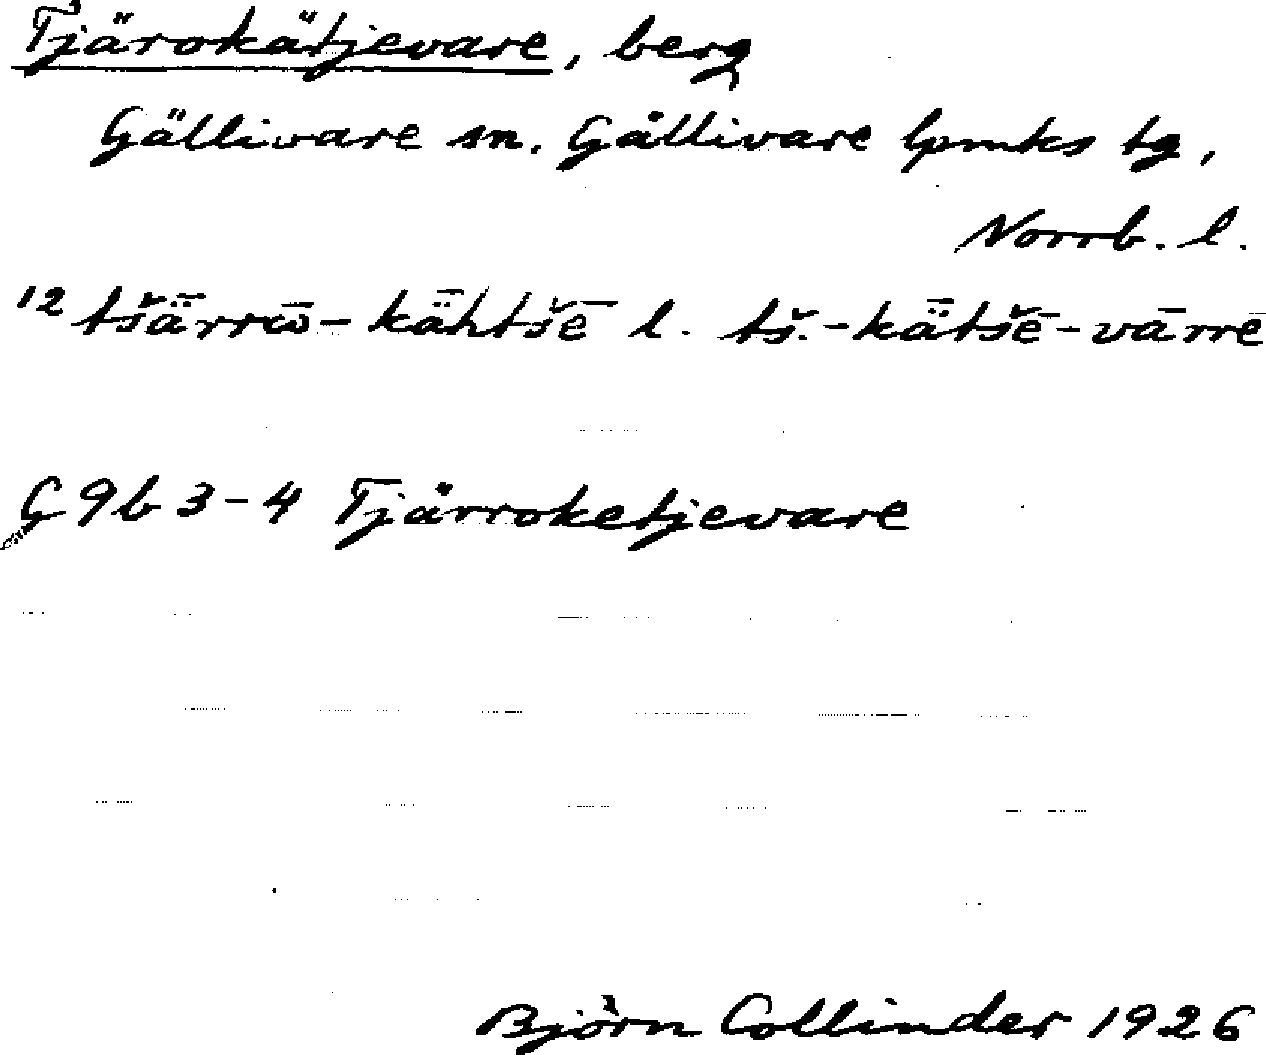 Tjärokätjevare, berg
Gällivare sn. Gällivare lpmks tg,
Norrb. l.
12 tšä̆rrω̄-kǟhtšē l. tš.-kǟtšē-vārrē
G 9 b 3-4 Tjärroketjevare
Björn Collinder 1926